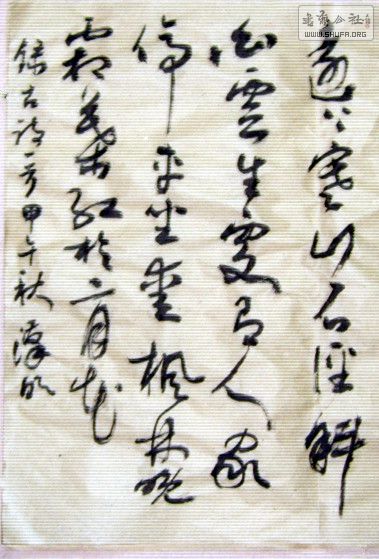 書藝公社
WWW.SHUFA.ORG
遠上寒山石徑斜
白雲生處有人家
停車坐愛楓林晚
霜葉紅於二月花
錄古詩一首甲午秋